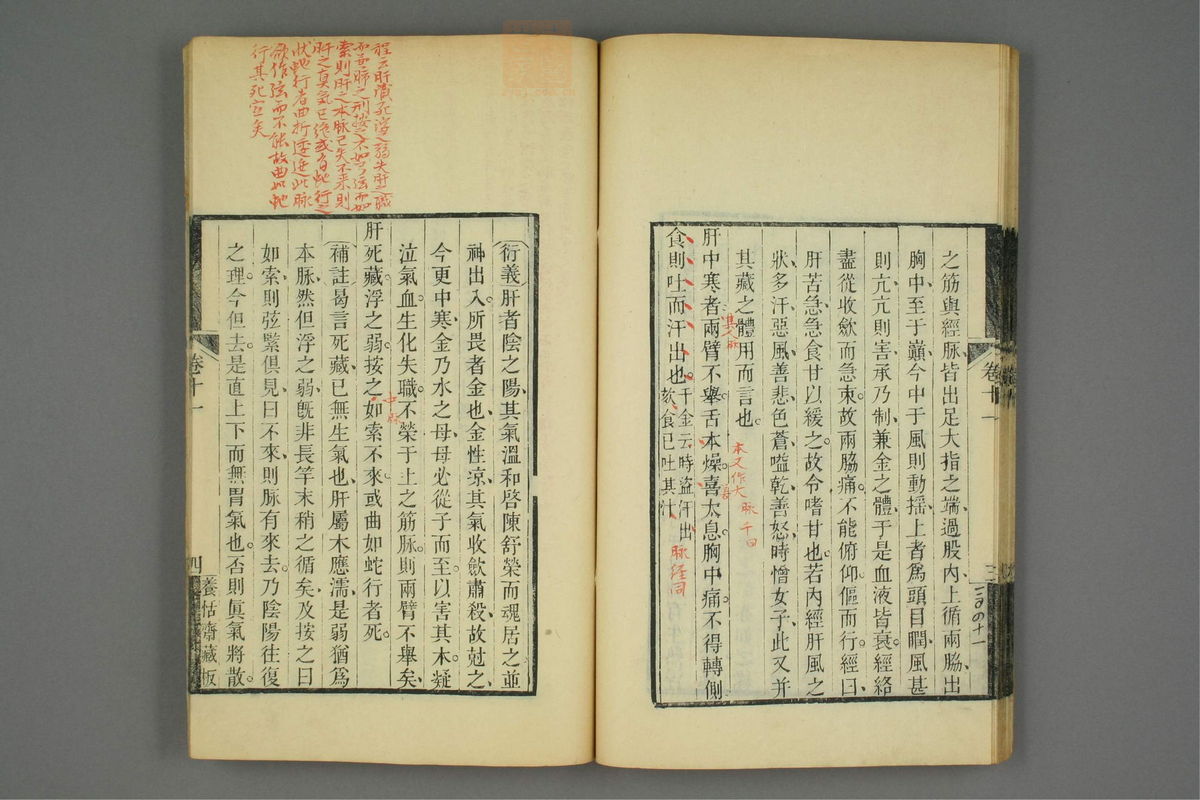 之筋與經脉、皆出足大指之端、過股內、上循兩脇、出
胸中、至于巔、今中于風則動搖、上者爲頭目瞤、風甚
則亢、亢則害、承乃制、兼金之體、于是血液皆衰。經絡
盡從收斂而急束。故兩脇痛。不能俯仰。傴而行。經曰、
肝苦急、急食甘以緩之。故令嗜甘也。若內經肝風之
狀、多汗惡風、善悲、色蒼、嗌乾、善怒、時憎女子、此又并
其藏之體用而言也。
肝中寒者、兩臂不舉、舌本燥。喜太息。胸中痛。不得轉側。
食則吐而汗出也。千金云、時盜汗出
欬、食已吐其汁、
本又作大
脉千曰
脉經同
卷十一
二ノ十一
程云肝藏死浮之弱失肝之職
而兼肺之刑按之不如弓弦而如
索則肝之本脉已失不來則
肝之真氣已絕或有蛇行之
狀蛇行者曲折逶迤此脉
欲作弦而不能故曲如蛇
行其死宜矣
(衍義)肝者陰之陽、其氣溫和、啓陳舒榮、而魂居之、並
神出入。所畏者金也、金性凉、其氣收歛肅殺、故尅之、
今更中寒、金乃水之母、母必從子而至。以害其木。凝
泣氣血、生化失職。不榮于上之筋脉。則兩臂不舉矣、
肝死藏、浮之弱、按之如索不來。或曲如蛇行者死。
中府
(補註)曷言死藏、已無生氣也、肝屬木、應濡、是弱猶爲
本脉、然但浮之弱、旣非長竿末稍之循矣、及按之曰
如索、則弦緊俱見、曰不來、則脉有來去、乃陰陽往復
之理、今但去。是直上下而無胃氣也。否則眞氣將散。
卷十一
四
養恬齋藏板